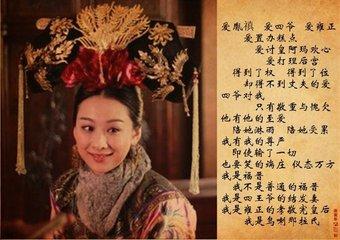 爱胤禛 爱四爷 爱雍正
爱置办糕点
爱讨皇阿玛欢心
爱打理后宫
得到了权 得到了位
却得不到丈夫的爱
四爷对我
只有敬重与愧欠
他有他的至爱
陪她淋雨 陪她受累
我有我的尊严
即使输了一切
也要笑的端庄 仪态万方
我是福晋
我不是普通的福晋
我是四王爷的结发妻
我是雍正的孝敬宪皇后
我是乌喇那拉氏